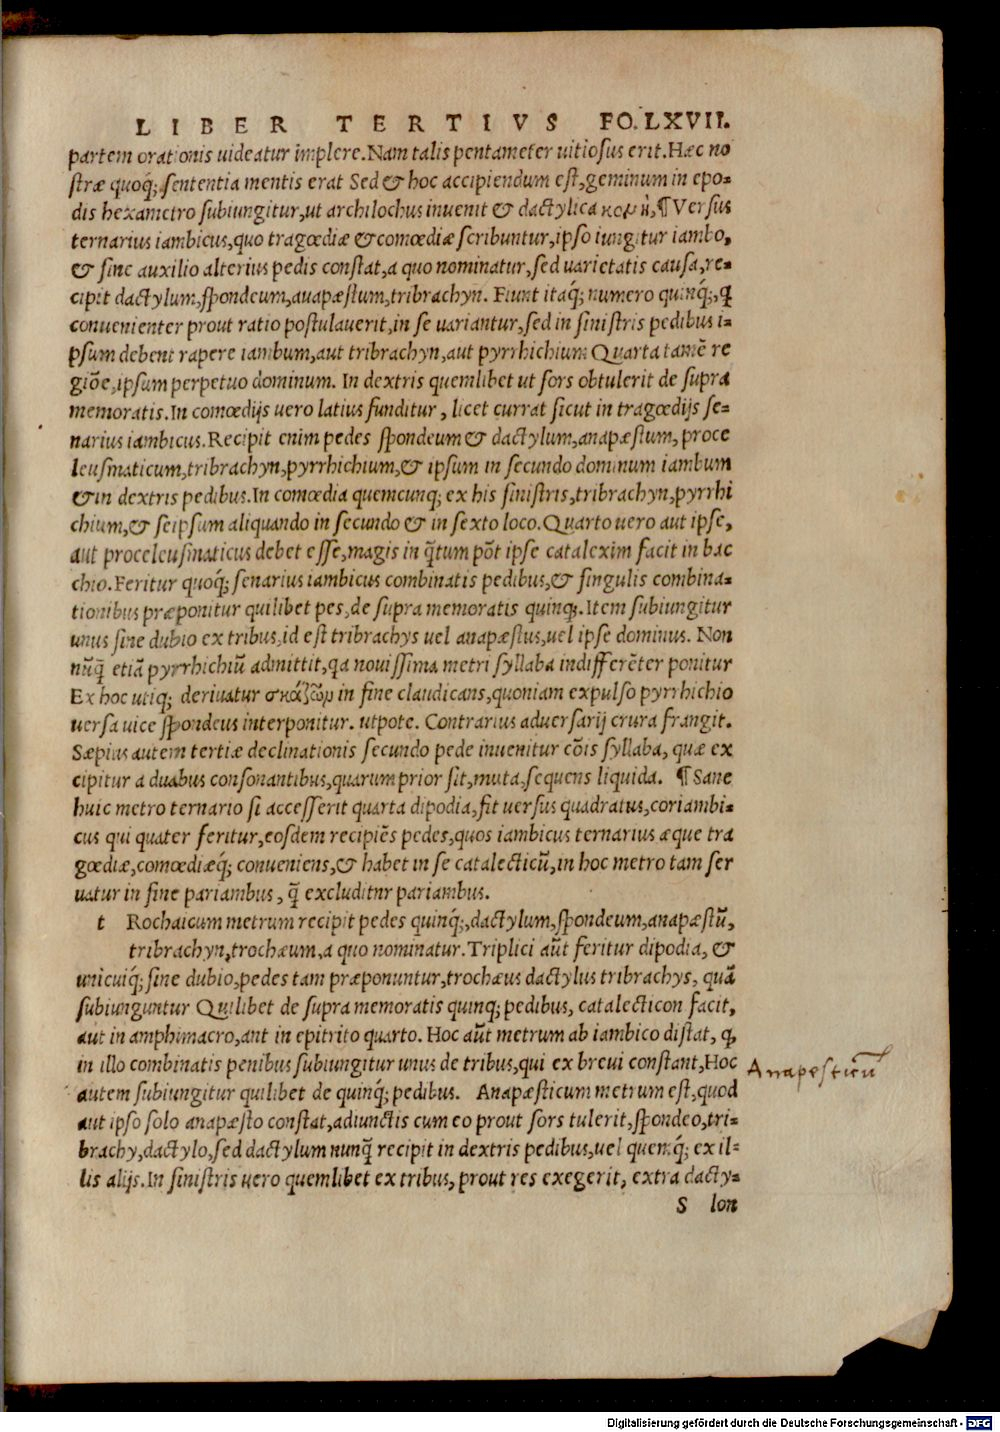 LIBER TERTIVS FO. LXVII.
partem orationis uideatur implere. Nam talis pentameter uitiosus erit. Hæc no
stræ quoq́; sententia mentis erat Sed & hoc accipiendum est, geminum in epo-
dis hexametro subiungitur, ut archilochus inuenit & dactylica κομὴ, ¶ Versus
ternarius iambicus, quo tragœdiæ & comœdiæ scribuntur, ipso iungitur iambo,
& sine auxilio alterius pedis constat, a quo nominatur, sed uarietatis causa, re-
cipit dactylum, spondeum, auapæstum, tribrachyn. Fiunt itaq́; numero quinq́;, q̃
conuenienter prout ratio postulauerit, in se uariantur, sed in sinistris pedibus i-
psum debent rapere iambum, aut tribrachyn, aut pyrrhichium Quarta tamẽ re
giõe, ipsum perpetuo dominum. In dextris quemlibet ut sors obtulerit de supra
memoratis. In comœdijs uero latius funditur, licet currat sicut in tragœdijs se-
narius iambicus. Recipit enim pedes spondeum & dactylum, anapæstum, proce
leusmaticum, tribrachyn, pyrrhichium, & ipsum in secundo dominum iambum
& in dextris pedibus. In comœdia quemcunq; ex his sinistris, tribrachyn, pyrrhi
chium, & seipsum aliquando in secundo & in sexto loco. Quarto uero aut ipse,
aut proceleusmaticus debet esse, magis in q̃tum põt ipse catalexim facit in bac
chio. Feritur quoq́; senarius iambicus combinatis pedibus, & singulis combina-
tionibus præponitur quilibet pes, de supra memoratis quinq;. Item subiungitur
unus sine dubio ex tribus, id est tribrachys uel anapæstus, uel ipse dominus. Non
nũq̃ etiã pyrrhichiũ admittit, qa nouissima metri syllaba indifferẽter ponitur
Ex hoc utiq; deriuatur σκάζωμ in fine claudicans, quoniam expulso pyrrhichio
uersa uice spondeus interponitur. utpote. Contrarius aduersarij crura frangit.
Sæpius autem tertiæ declinationis secundo pede inuenitur cõis syllaba, quæ ex
cipitur a duabus consonantibus, quarum prior sit, muta, sequens liquida. ¶ Sane
huic metro ternario si accesserit quarta dipodia, fit uersus quadratus, coriambi-
cus qui quater feritur, eosdem recipiẽs pedes, quos iambicus ternarius æque tra
gœdiæ, comœdiæq́; conueniens, & habet in se catalecticũ, in hoc metro tam ser
uatur in fine pariambus, q̃ excluditnr pariambus.
t Rochaicum metrum recipit pedes quinq́;, dactylum, spondeum, anapæstũ,
tribrachyn, trochæum, a quo nominatur. Triplici aũt feritur dipodia, &
unicuiq́; sine dubio, pedes tam præponuntur, trochæus dactylus tribrachys, quã
subiunguntur Quilibet de supra memoratis quinq; pedibus, catalecticon facit,
aut in amphimacro, ant in epitrito quarto. Hoc aũt metrum ab iambico distat, q,
in illo combinatis penibus subiungitur unus de tribus, qui ex breui constant, Hoc
autem subiungitur quilibet de quinq́; pedibus. Anapæsticum metrum est, quod
aut ipso solo anapæsto constat, adiunctis cum eo prout sors tulerit, spondeo, tri-
brachy, dactylo, sed dactylum nunq̃ recipit in dextris pedibus, uel quemq́; ex il-
lis alijs. In sinistris uero quemlibet ex tribus, prout res exegerit, extra dacty-
S lon
Anapesticũ
Digitalisierung gefördert durch die Deutsche Forschungsgemeinschaft - DFG